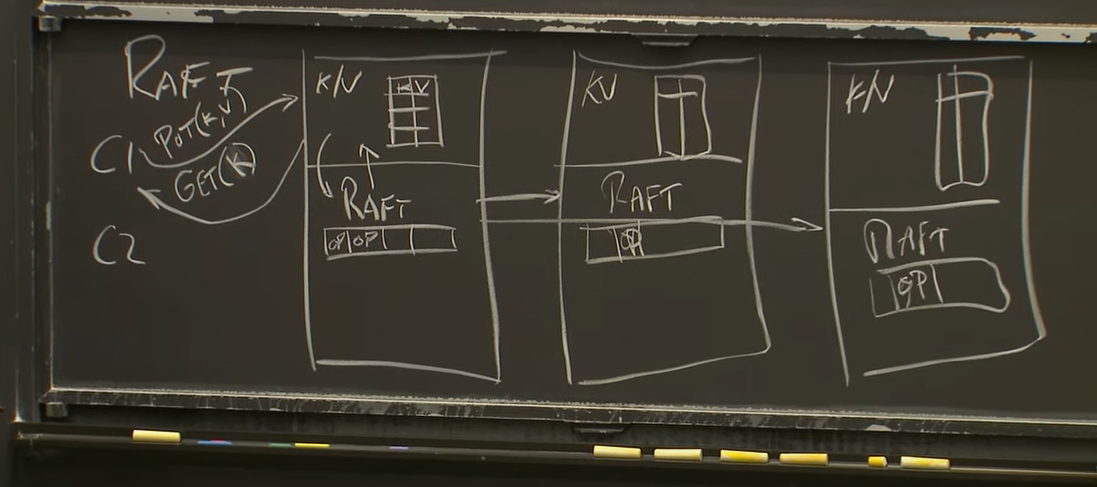 RAFT
C1
PUT(K,V)
GET(K)
C2
K/V
K V
RAFT
OP OP
KV
RAFT
OP
K/V
RAFT
OP